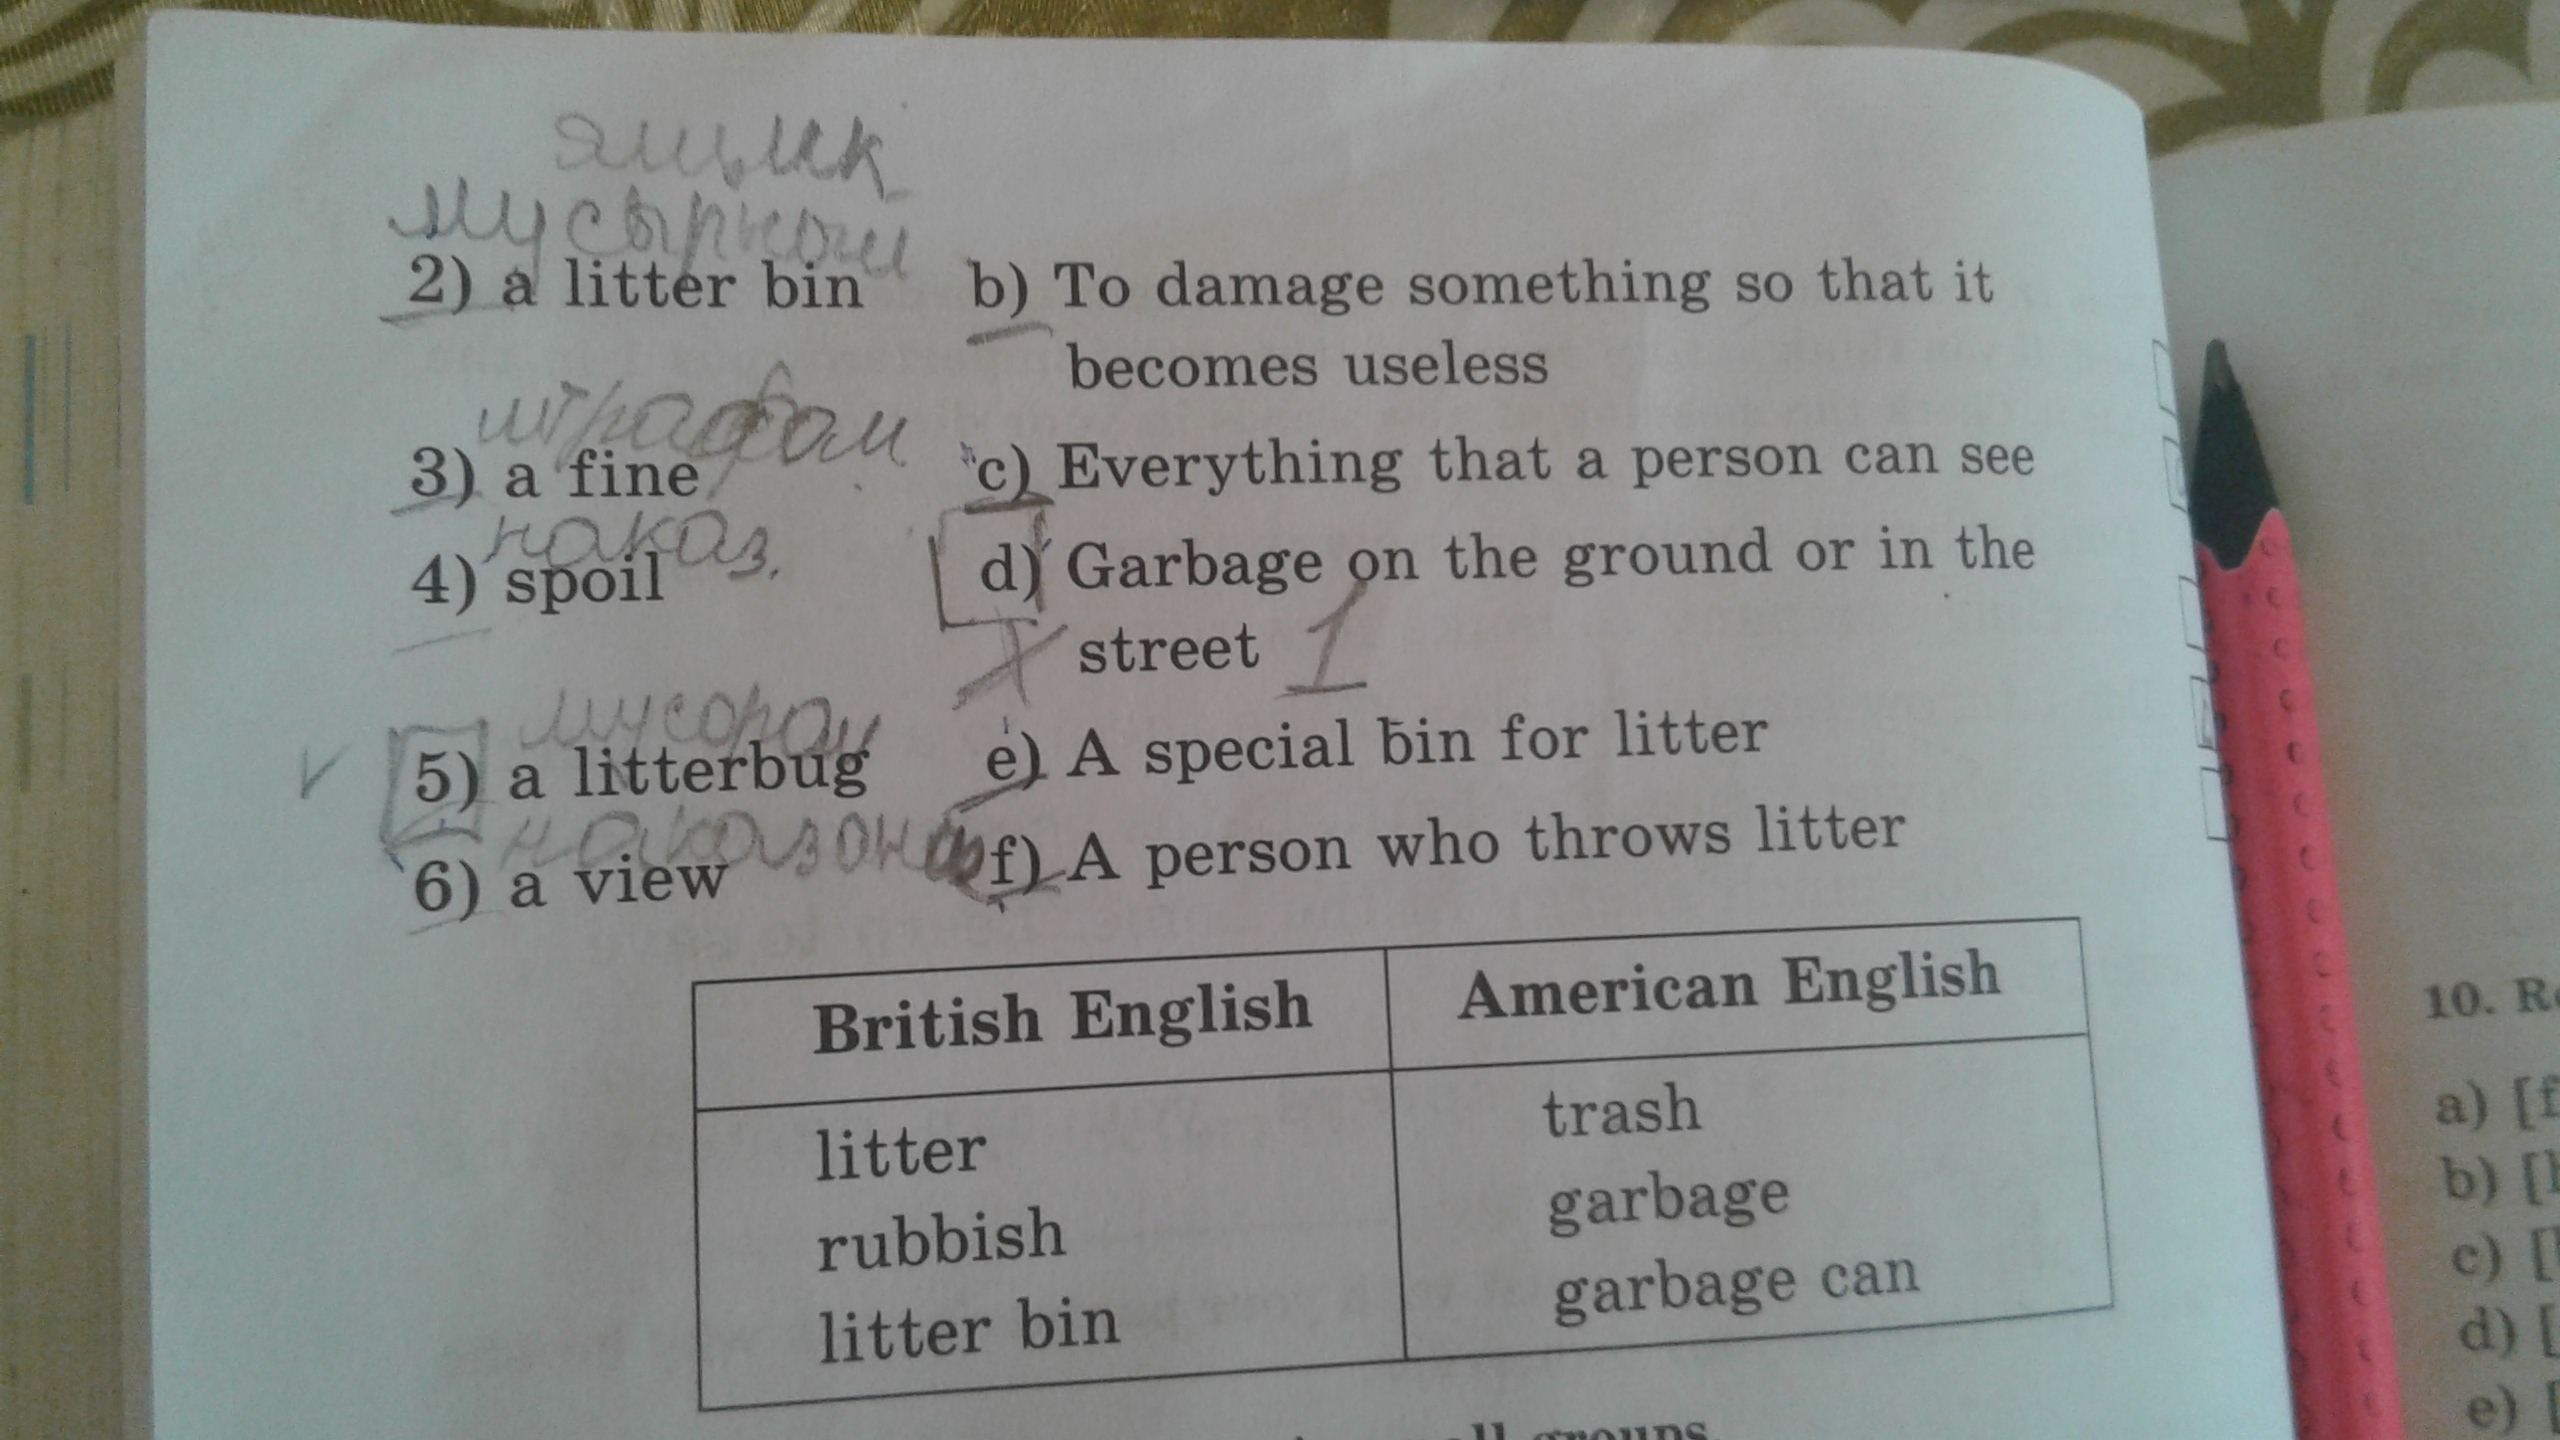 ящык
мусырной
2) a litter bin b) To damage something so that it
becomes useless
штраф
3) a fine c) Everything that a person can see
наказ.
4) spoil d) Garbage on the ground or in the
street 1
5) a litterbug e) A special bin for litter
6) a view f) A person who throws litter
British English American English
litter trash
rubbish garbage
litter bin garbage can
groups.
10.
a) [f
b) [
c) [
d) [
e) [